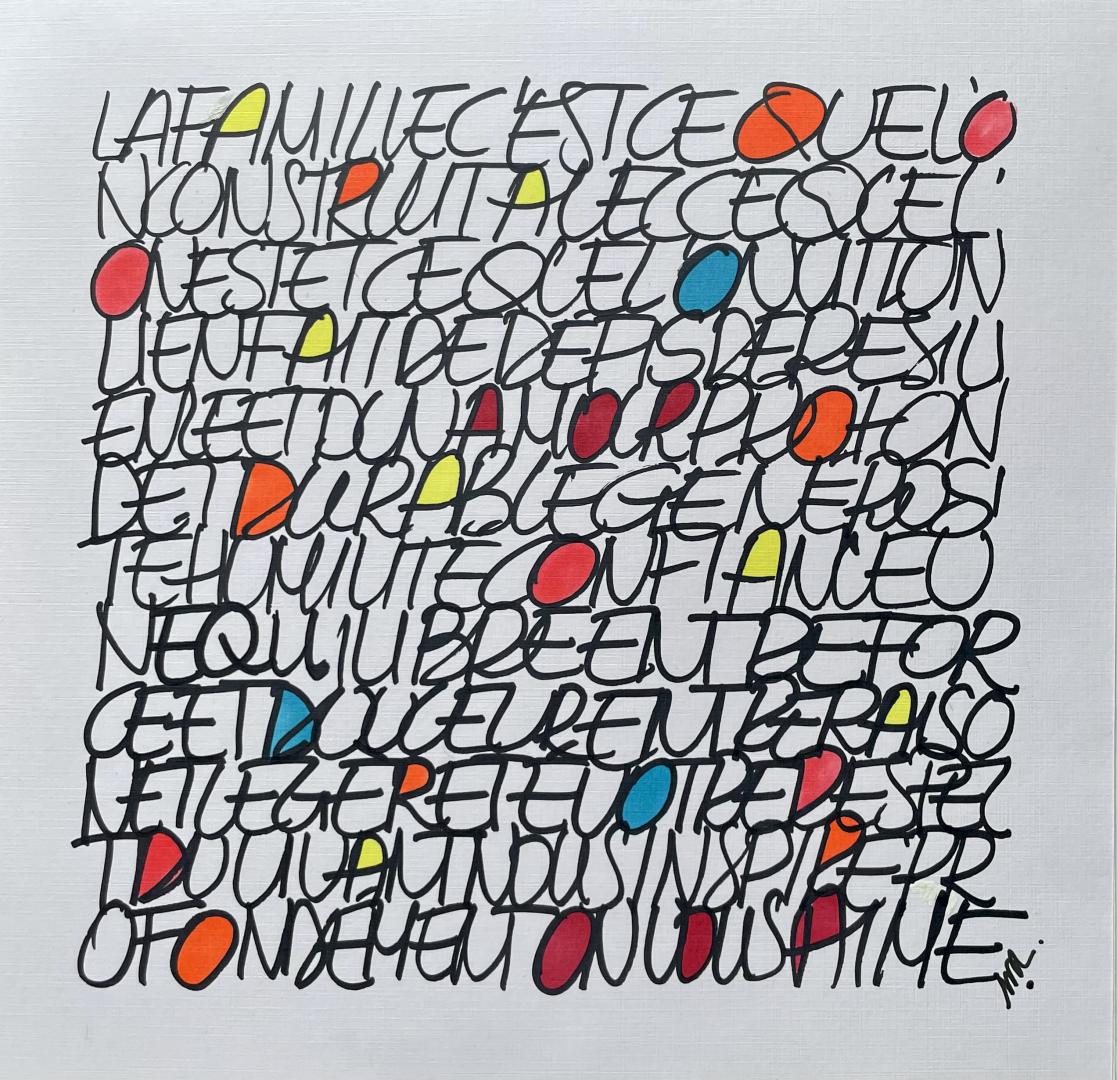 LAFAMILLEC'ESTCEQUEL'O
NCONSTRUITAVECCEQUEL'
ONESTETCEQUEL'ONVITUN
LIENFAITDEDEFISDERESILI
ENCEETDUNAMOURPROFON
DETDURABLEGENEROSI
TEHUMILITECONFIANCEU
NEQUILIBREENTREFOR
CEETDOUCEURENTRERAISO
NETLEGERETEVOTRERESPEC
TDUVIVANTNOUSINSPIREPR
OFONDEMENTONVOUSAIME